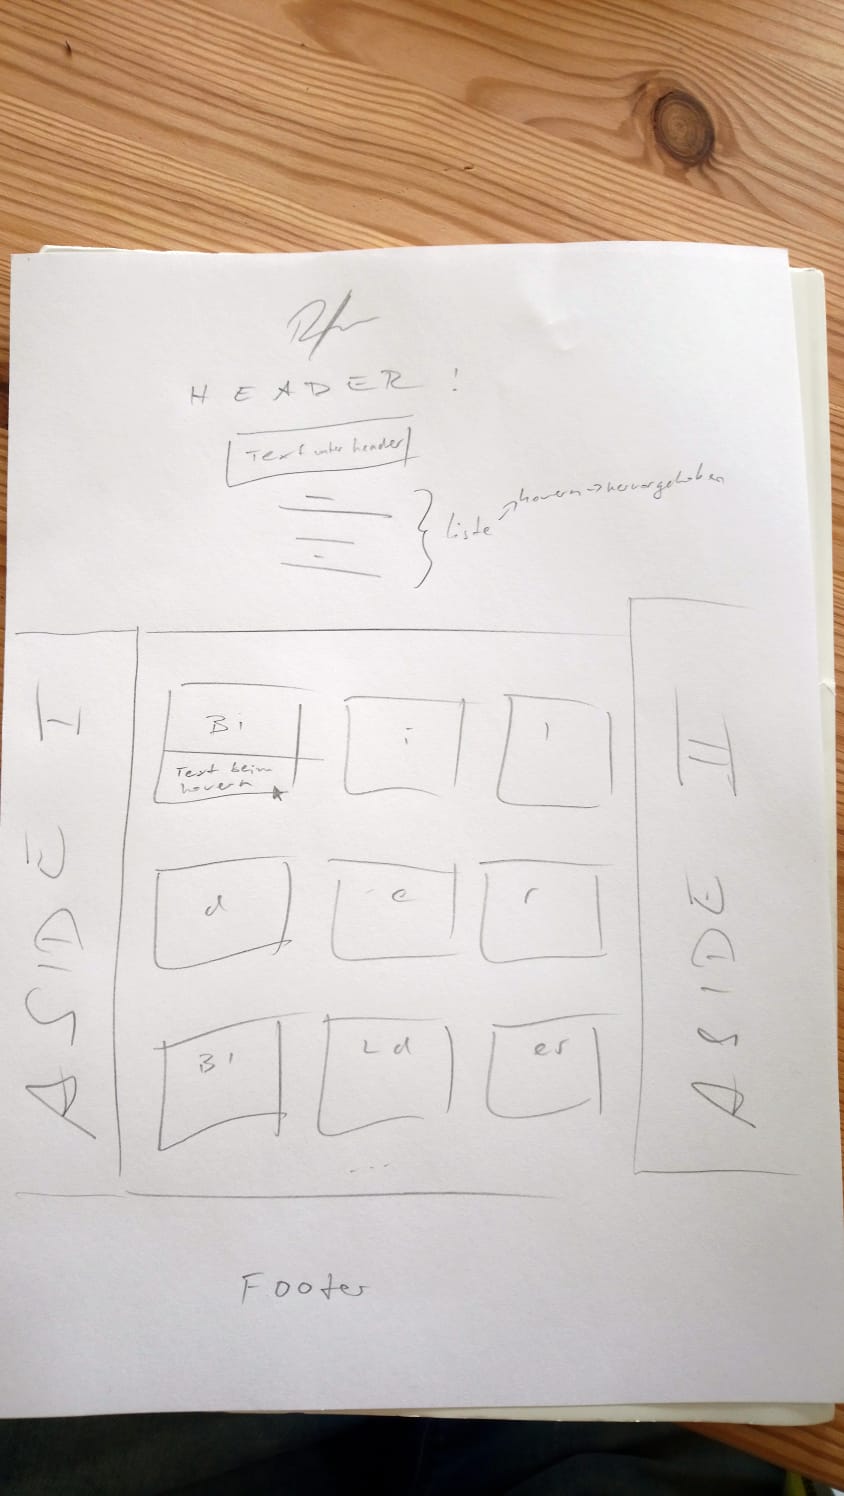 HEADER!
Text unter header
liste
hovern -> hervorgehoben
ASIDE I
ASIDE II
Bi
Text beim
hovern
i
l
d
e
r
Bi
Ld
er
...
Footer